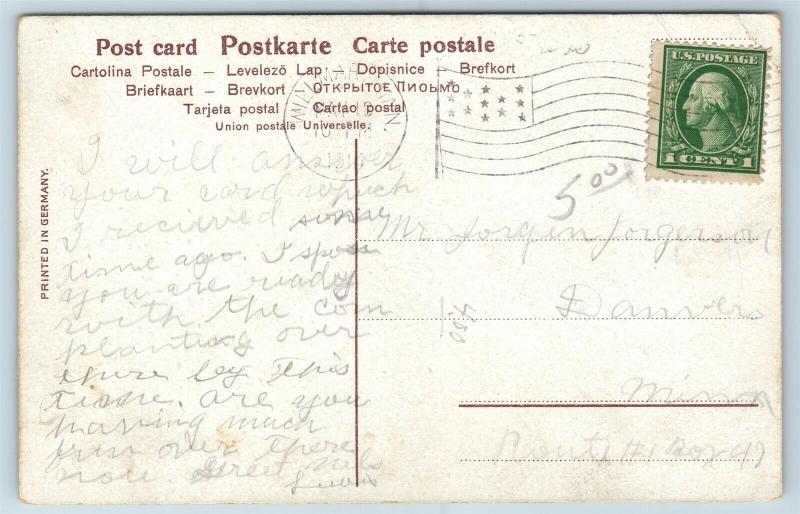 Post card Postkarte Carte postale
Cartolina Postale – Levelezö Lap – Dopisnice – Brefkort
Briefkaart – Brevkort – ОТКРЫТОЕ ПИСЬМО
Tarjeta postal – Cartao postal
Union postale Universelle.
U.S. POSTAGE
1 CENT 1
PRINTED IN GERMANY.
I will answer
your card which
I recieved some
time ago. I spose
you are ready
with the corn
planting over
there by this
time, are you
having much
fun over there
now. Greet Nels
5 00
Mr Jorgen Jorgenson
Danvers
450
Minn
Route #1 Box 49